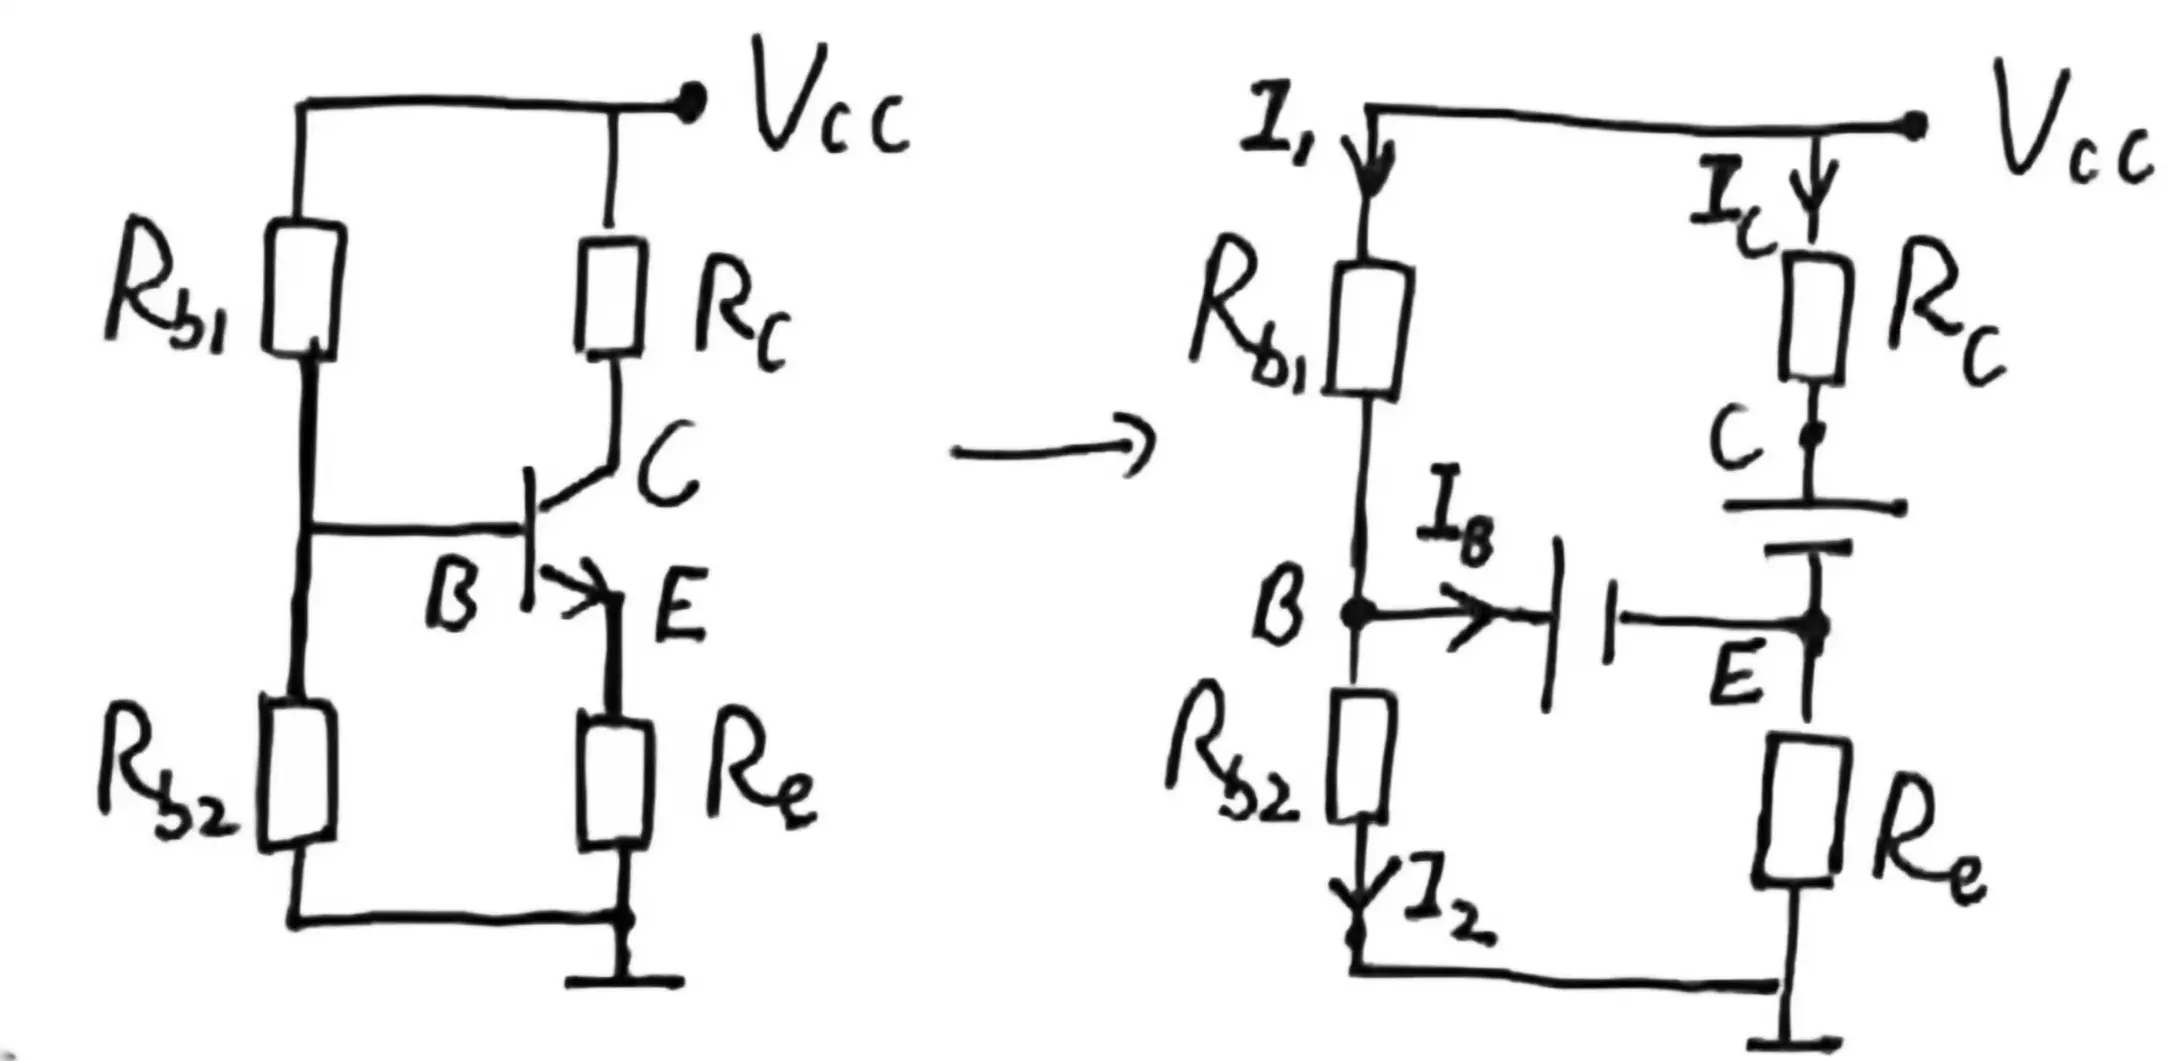 Vcc
Rb1
Rc
C
B
E
Rb2
Re
I1
Vcc
Ic
Rb1
Rc
C
IB
B
E
Rb2
Re
I2